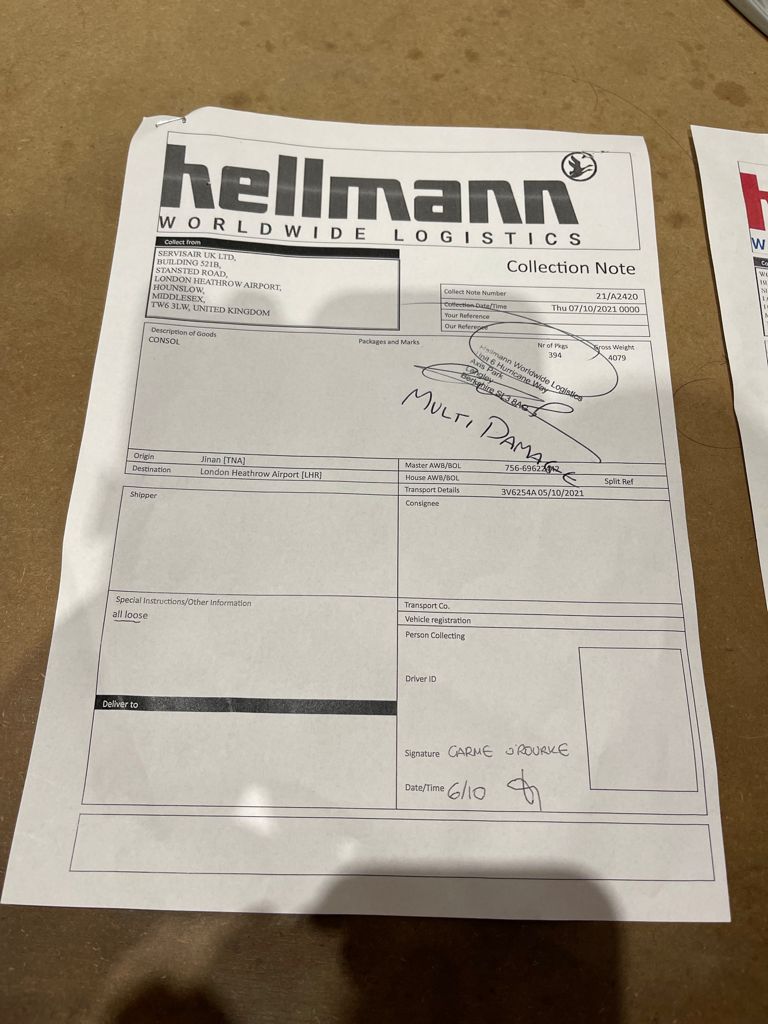 hellmann
WORLDWIDE LOGISTICS
Collect from
SERVISAIR UK LTD,
BUILDING 521B,
STANSTED ROAD,
LONDON HEATHROW AIRPORT,
HOUNSLOW,
MIDDLESEX,
TW6 3LW, UNITED KINGDOM
Collection Note
Collect Note Number 21/A2420
Collection Date/Time Thu 07/10/2021 0000
Your Reference
Our Reference
Description of Goods Packages and Marks Nr of Pkgs Gross Weight
CONSOL 394 4079
Hellmann Worldwide Logistics
Unit 6 Hurricane Way
Axis Park
Langley
Berkshire SL3
MULTI DAMAGE
Origin Jinan [TNA]
Destination London Heathrow Airport [LHR]
Master AWB/BOL
House AWB/BOL Split Ref
Transport Details 3V6254A 05/10/2021
Shipper
Consignee
Special Instructions/Other Information
all loose
Deliver to
Transport Co.
Vehicle registration
Person Collecting
Driver ID
Signature O'ROURKE
Date/Time 6/10